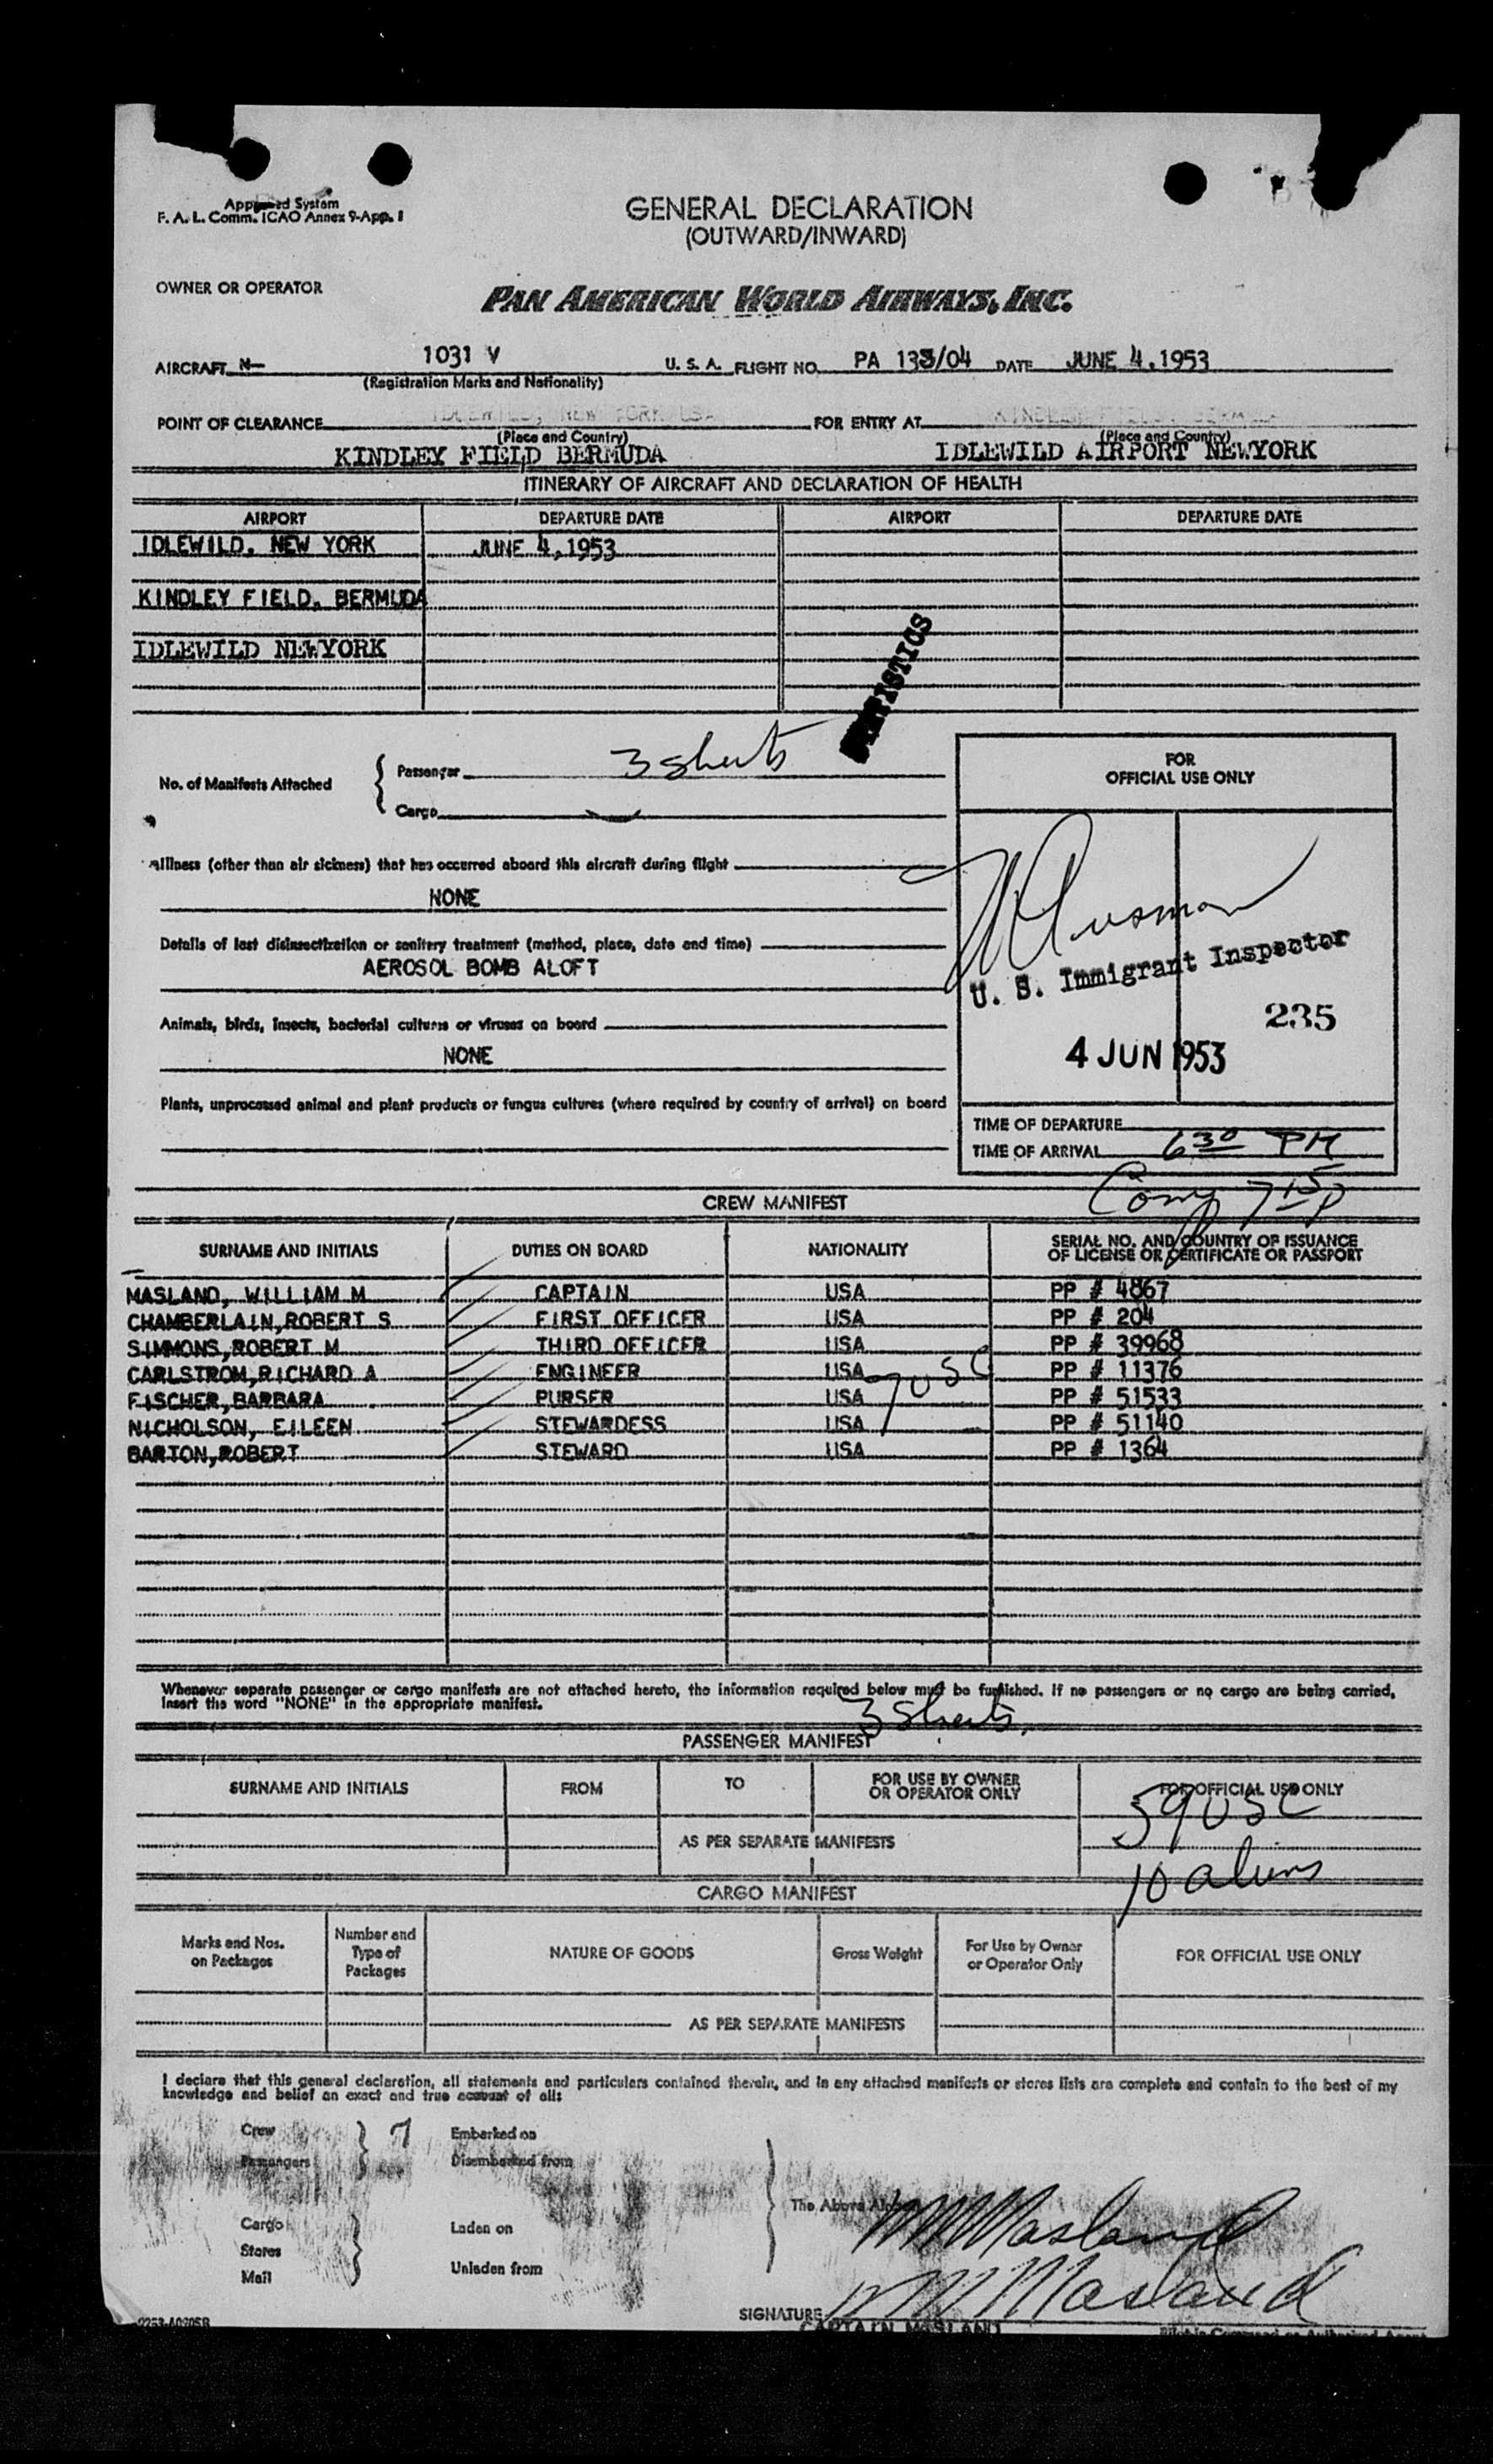 Approved System
F. A. L. Comm. ICAO Annex 9-App. 1
GENERAL DECLARATION
(OUTWARD/INWARD)
OWNER OR OPERATOR
PAN AMERICAN WORLD AIRWAYS, INC.
AIRCRAFT N- 1031 V U. S. A. FLIGHT NO. PA 133/04 DATE JUNE 4, 1953
(Registration Marks and Nationality)
POINT OF CLEARANCE IDLEWILD, NEW YORK USA FOR ENTRY AT KINDLEY FIELD, BERMUDA
(Place and Country) (Place and Country)
KINDLEY FIELD BERMUDA IDLEWILD AIRPORT NEWYORK
ITINERARY OF AIRCRAFT AND DECLARATION OF HEALTH
AIRPORT DEPARTURE DATE AIRPORT DEPARTURE DATE
IDLEWILD, NEW YORK JUNE 4, 1953
KINDLEY FIELD, BERMUDA
IDLEWILD NEWYORK
STATISTICS
No. of Manifests Attached
Passenger 3 sheets
Cargo
FOR
OFFICIAL USE ONLY
Illness (other than air sickness) that has occurred aboard this aircraft during flight
NONE
Details of last disinsectization or sanitary treatment (method, place, date and time)
AEROSOL BOMB ALOFT
Animals, birds, insects, bacterial cultures or viruses on board
NONE
Plants, unprocessed animal and plant products or fungus cultures (where required by country of arrival) on board
U. S. Immigrant Inspector
235
4 JUN 1953
TIME OF DEPARTURE
TIME OF ARRIVAL 6 30 PM
Comp 7 15 P
CREW MANIFEST
SURNAME AND INITIALS DUTIES ON BOARD NATIONALITY SERIAL NO. AND COUNTRY OF ISSUANCE
OF LICENSE OR CERTIFICATE OR PASSPORT
MASLAND, WILLIAM M CAPTAIN USA PP # 4867
CHAMBERLAIN, ROBERT S FIRST OFFICER USA PP # 204
SIMMONS, ROBERT M THIRD OFFICER USA PP # 39968
CARLSTROM, RICHARD A ENGINEER USA PP # 11376
7 USC
FISCHER, BARBARA PURSER USA PP # 51533
NICHOLSON, EILEEN STEWARDESS USA PP # 51140
BARTON, ROBERT STEWARD USA PP # 1364
Whenever separate passenger or cargo manifests are not attached hereto, the information required below must be furnished. If no passengers or no cargo are being carried,
insert the word "NONE" in the appropriate manifest.
3 Sheets
PASSENGER MANIFEST
SURNAME AND INITIALS FROM TO FOR USE BY OWNER
OR OPERATOR ONLY FOR OFFICIAL USE ONLY
59 USC
AS PER SEPARATE MANIFESTS
10 aliens
CARGO MANIFEST
Marks and Nos.
on Packages
Number and
Type of
Packages
NATURE OF GOODS
Gross Weight
For Use by Owner
or Operator Only
FOR OFFICIAL USE ONLY
AS PER SEPARATE MANIFESTS
I declare that this general declaration, all statements and particulars contained therein, and in any attached manifests or stores lists are complete and contain to the best of my
knowledge and belief an exact and true account of all:
Crew 7 Embarked on
Passengers Disembarked from
The Above
W M Masland
Cargo Laden on
Stores
Mail Unladen from
SIGNATURE W M Masland
CAPTAIN MASLAND